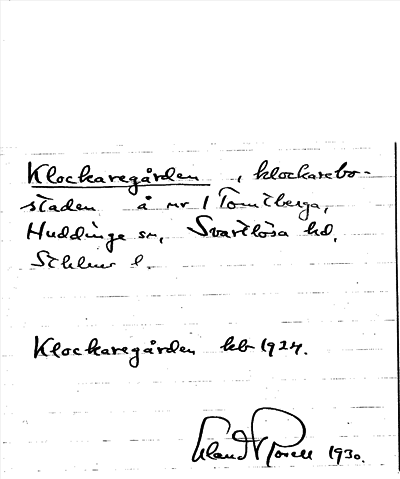 Klockaregården , klockarebo-
staden å nr 1 Tomtberga,
Huddinge sn, Svartlösa hd,
Sthlms l.
Klockaregården kb 1924.
1930.